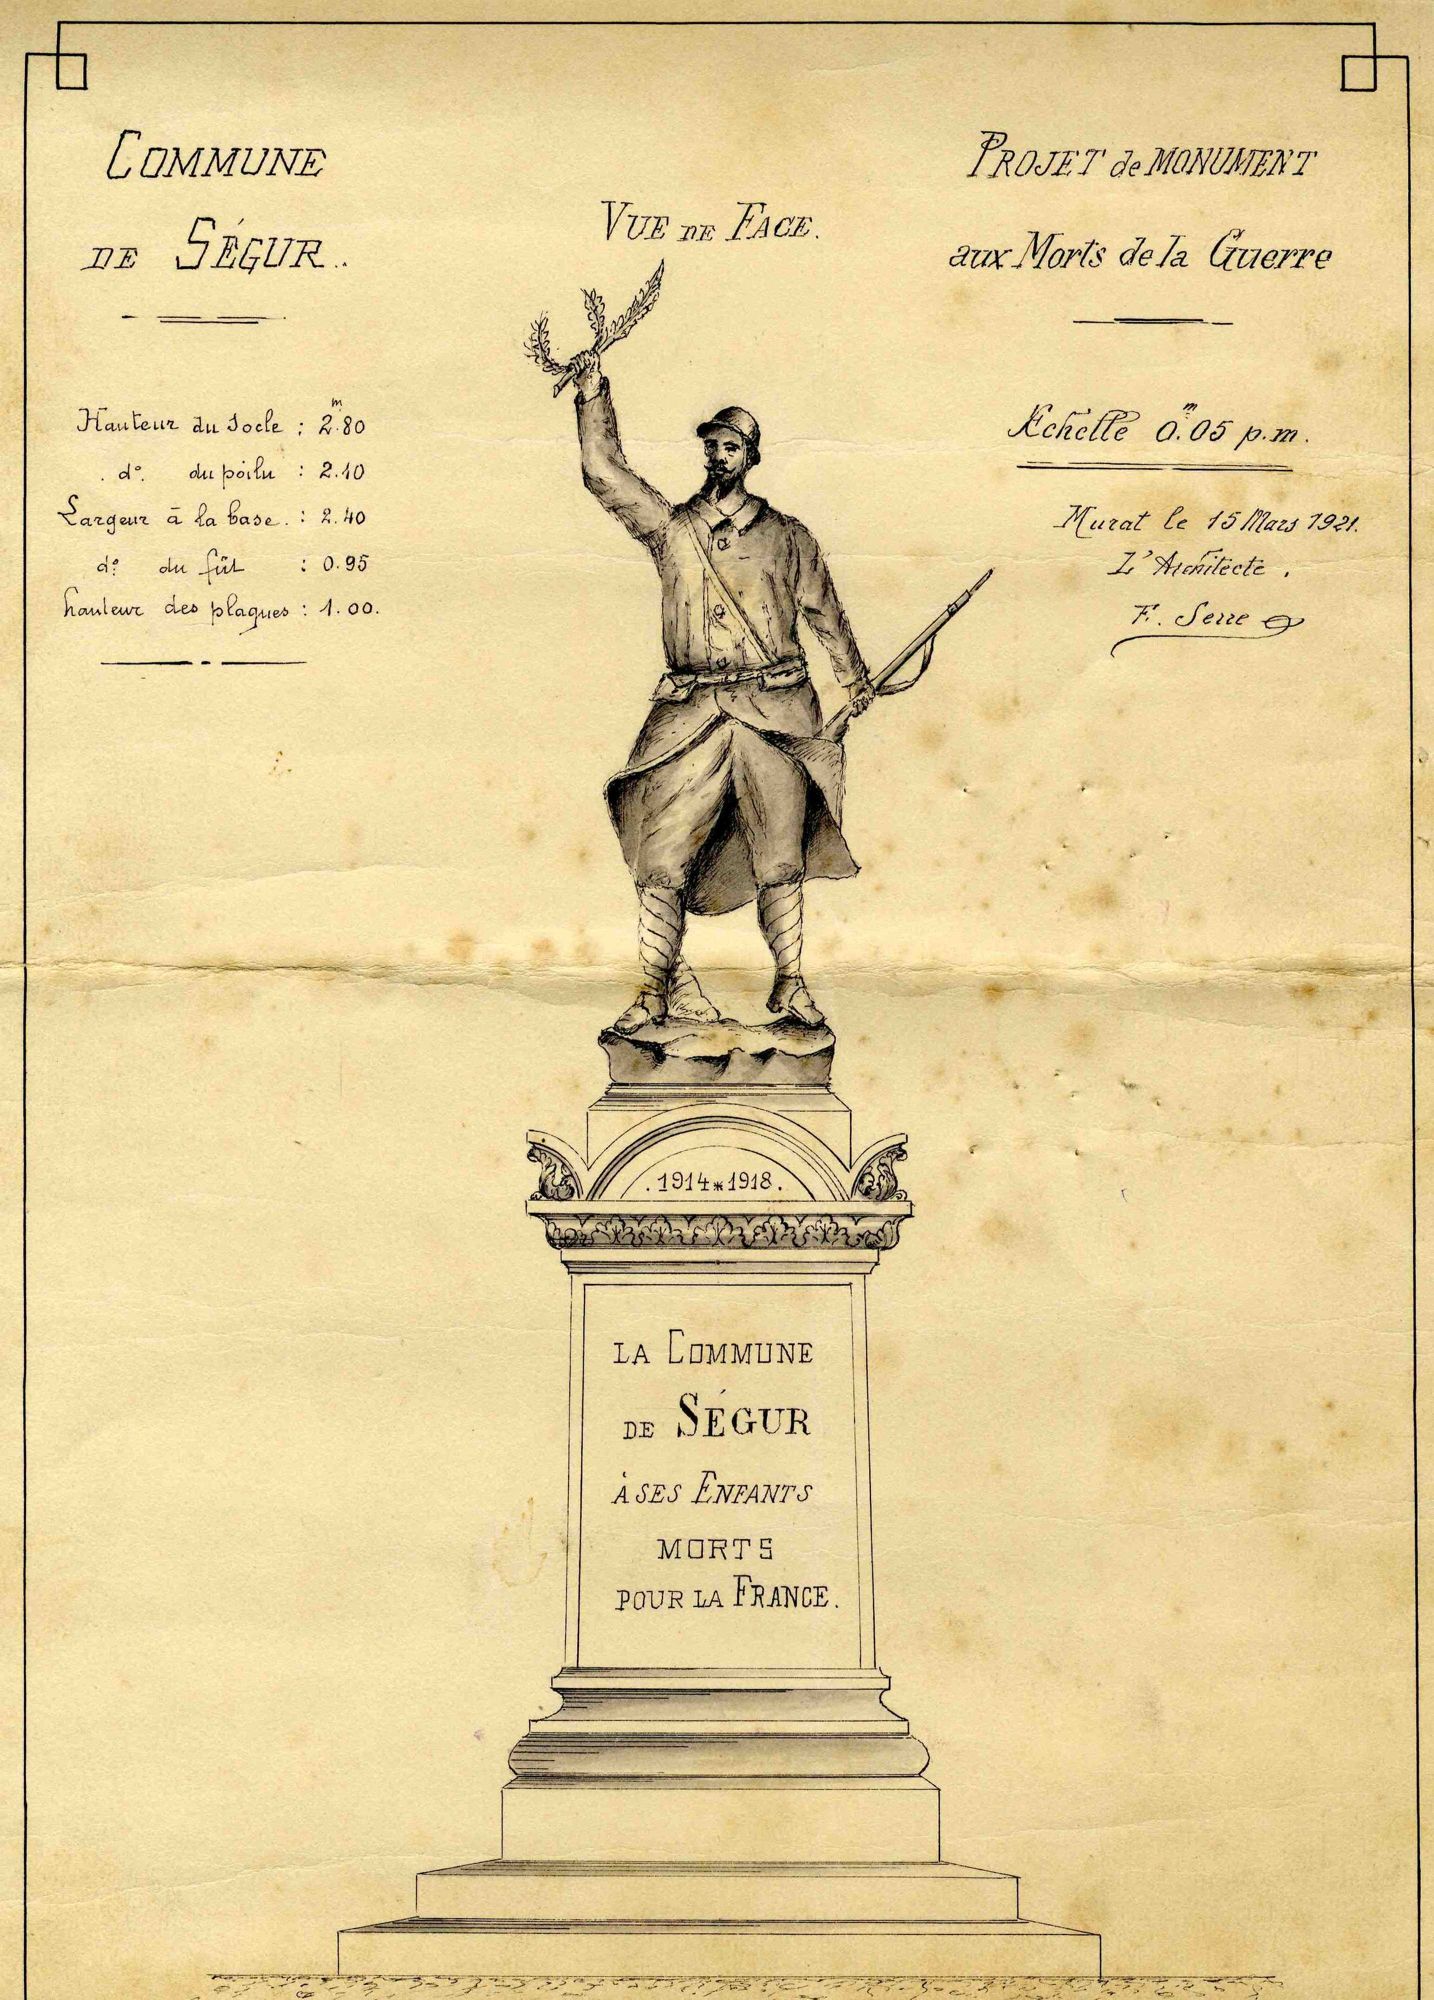 COMMUNE
DE SÉGUR.
Hauteur du Socle : 2.80 m
d°. du poilu : 2.10
Largeur à la base. : 2.40
d° du fût : 0.95
hauteur des plaques : 1.00.
VUE DE FACE.
PROJET de MONUMENT
aux Morts de la Guerre
Echelle 0.m05 p.m.
Murat le 15 Mars 1921.
L'Architecte.
F. Serre
.1914*1918.
LA COMMUNE
DE SÉGUR
À SES ENFANTS
MORTS
POUR LA FRANCE.